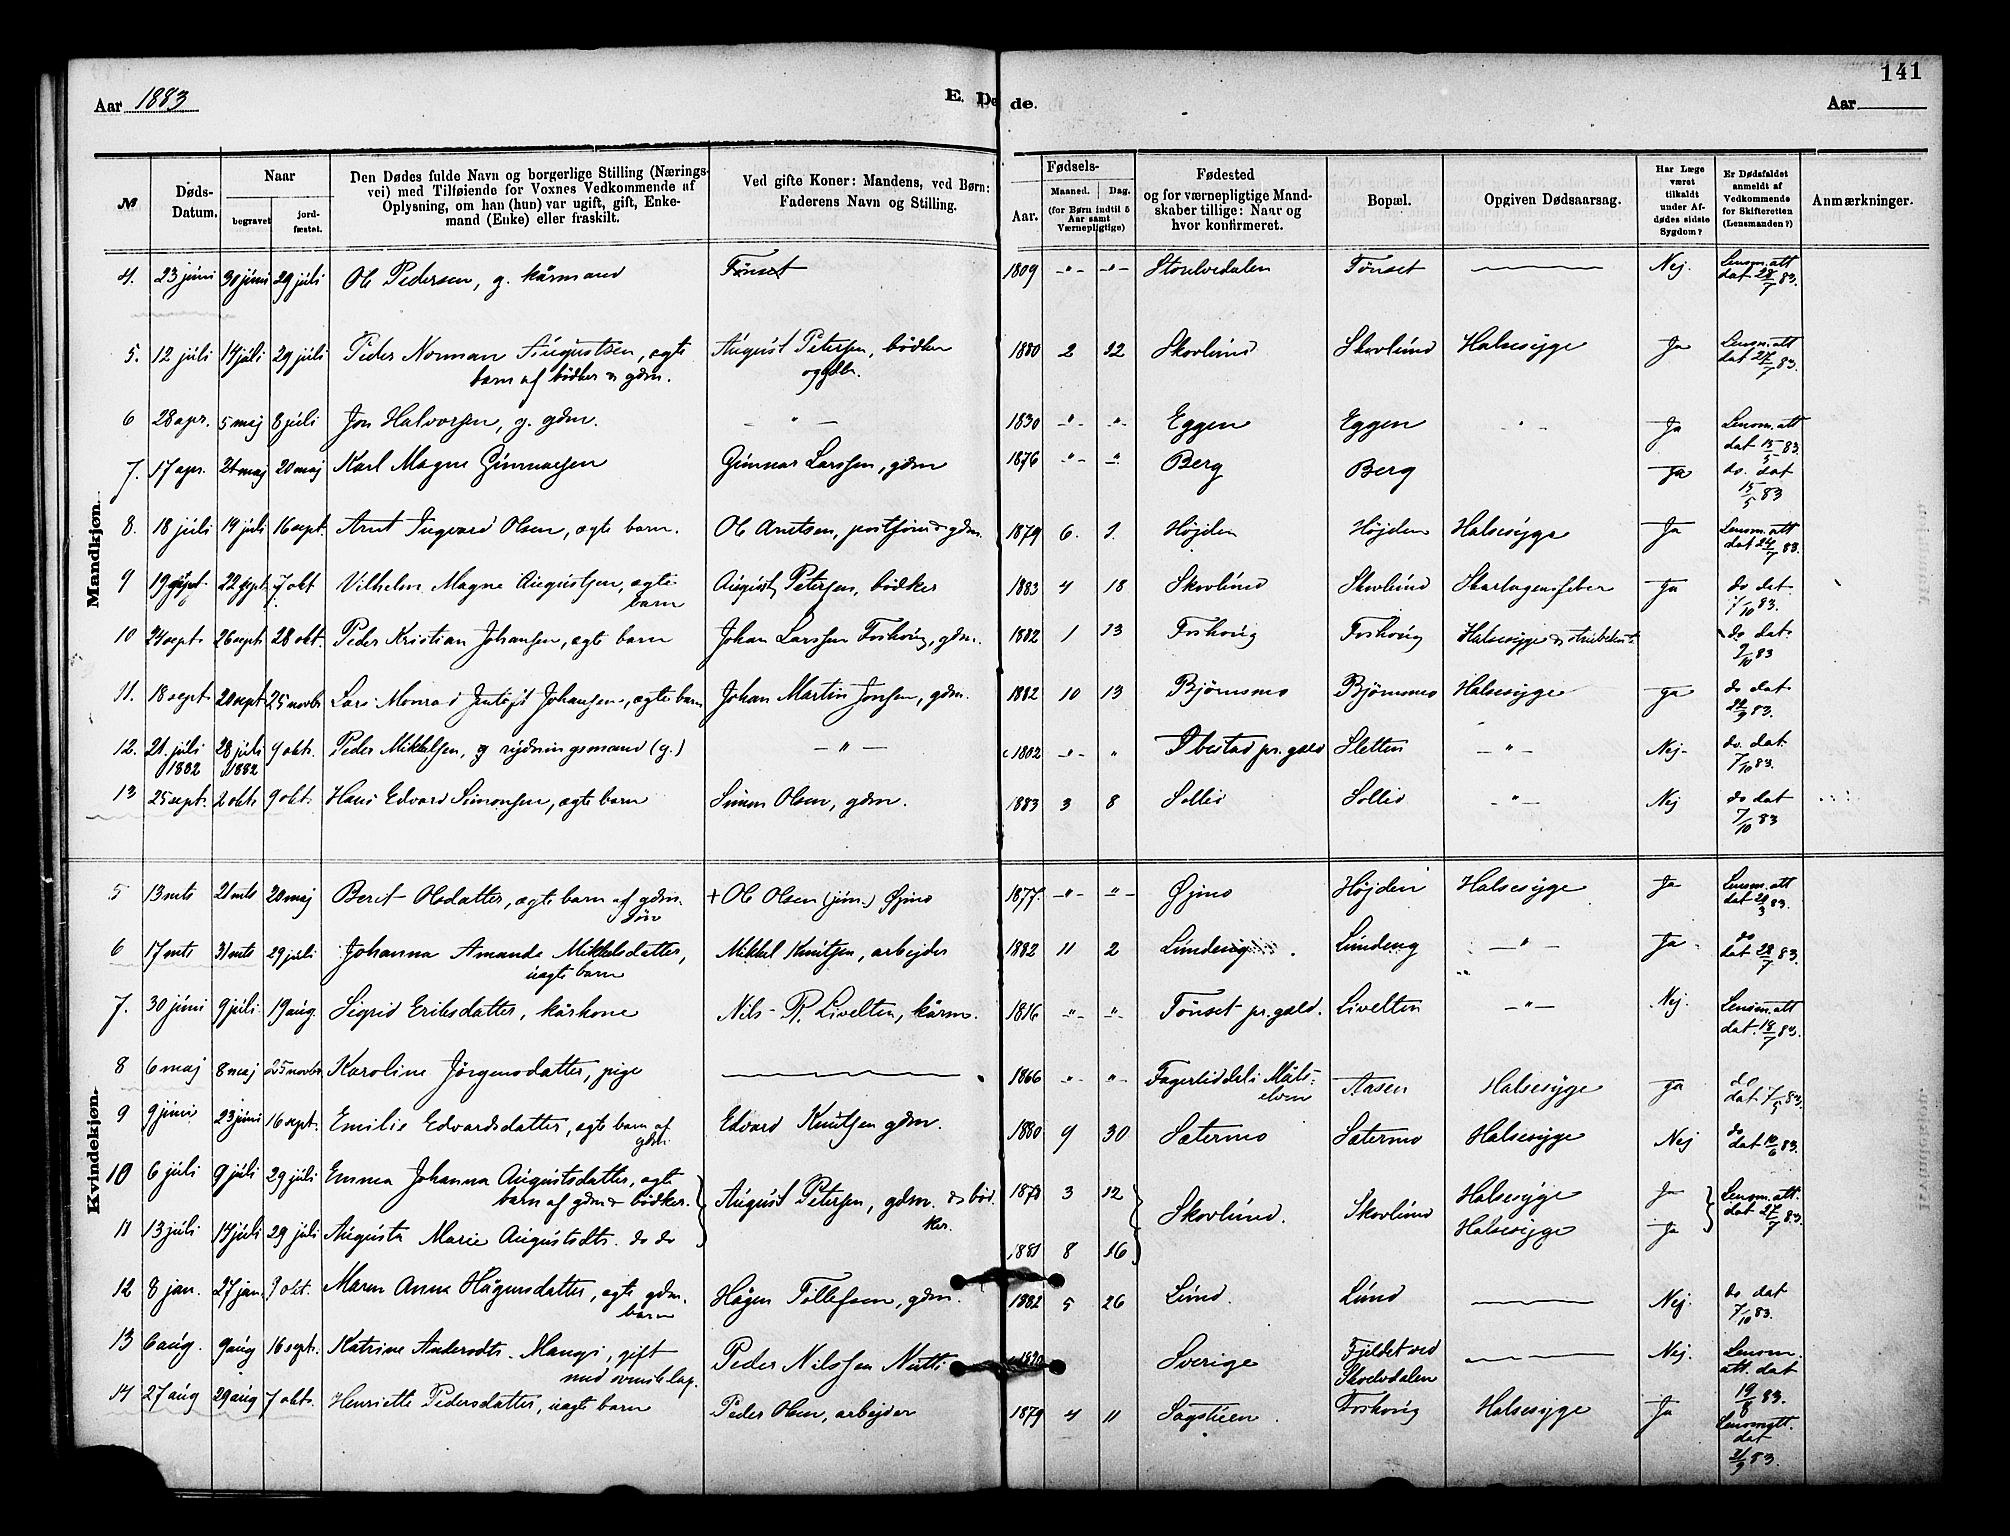 141
Aar 1883
E. Døde.
Aar
№
Døds-Datum.
Naar
begravet
jord-fæstet.
Den Dødes fulde Navn og borgerlige Stilling (Nærings-
vei) med Tilføiende for Voxnes Vedkommende af
Oplysning, om han (hun) var ugift, gift, Enke-
mand (Enke) eller fraskilt.
Ved gifte Koner: Mandens, ved Børn:
Faderens Navn og Stilling.
Fødsels-
Aar.
Maaned.
Dag.
(for Børn indtil 5
Aar samt
Værnepligtige)
Fødested
og for værnepligtige Mand-
skaber tillige: Naar og
hvor konfirmeret.
Bopæl.
Opgiven Dødsaarsag.
Har Læge
været
tilkaldt
under Af-
dødes sidste
Sygdom?
Er Dødsfaldet
anmeldt af
Vedkommende
for Skifteretten
(Lensmanden?)
Anmærkninger.
Mandkjøn.
4. 23 juni 30 juni 29 juli Ole Pedersen, g. kårmand Tönset 1809 -"- -"- Storelvedalen Tönset Nej. Lensm. att
dat 28/7 83.
5. 12 juli 14 juli 29 juli Peder Norman Augustsen, ægte August Petersen, bödker 1880 2 12 Skovlund Skovlund Halsesyge Ja Lensm. att
barn af bödker & gdm. og gdbr. dat 27/7 83.
6 28 apr. 5 maj 8 juli Jon Halvorsen, g. gdm. - " - 1830 -"- -"- Eggen Eggen - " - Ja Lensm. att
dat 15/5 83
7. 17 apr. 21 maj 20 maj Karl Magne Gunnarsen Gunnar Larssen, gdm 1876 -"- -"- Berg Berg Ja do. dat
15/5 83
8. 18 juli 19 juli 16 sept. Arnt Ingvard Olsen, ægte barn. Ole Arntsen, postförer & gdm. 1879 6. 1. Højden Højden Halsesyge Ja Lensm. att
dat 24/7 83.
9 19 sept. 22 sept. 7 okt. Vilhelm Magne Augustsen, ægte August Petersen, bödker 1883 4 18 Skovlund Skovlund Skarlagensfeber Ja do dat
barn 7/10 83.
10 24 sept. 26 sept. 28 okt. Peder Kristian Johansen, ægte barn Johan Larssen Foshoug, gdm. 1882 1 13 Foshoug Foshoug Halsesyge & do dat
9/10 83
11. 18 sept. 20 sept. 25 novbr Lars Monrad Johansen, ægte barn Johan Martin Jonsen, gdm. 1882 10 13 Björnsmo Björnsmo Halsesyge Ja do dat
22/9 83.
12. 21. juli 28 juli 9 okt. Peder Mikkelsen, rydningsmand (g.) - " - c 1802 -"- " Ibestad pr.gæld Sletten - " - Nej- do. dat.
1882 1882 7/10 83.
13 25 sept. 2 okt. 9 okt. Hans Edvard Simonsen, ægte barn Simon Olsen, gdm. 1883 3 8 Sollid Sollid - " - Nej do dat
7/10 83
Kvindekjøn.
5 13 mts 21 mts 20 maj Berit Olsdatter, ægte barn af gdm. + Ole Olsen (jun.) Øjmo 1877. -"- "- Øjmo Højden Halsesyge Ja Lensm. att
dat 20/3 83.
6 17 mts 31 mts 29 juli Johanna Amanda Mikkelsdatter, Mikkel Knutsen, arbejder 1882 11 2 Lundeng Lundeng - " - Ja do
uægte barn dat 28/7 83.
7. 30 juni 9 juli 19 aug. Sigrid Eriksdatter, kårkone Nils P. Livelten, kårm. 1816 -"- -"- Tönset pr.gæld. Livelten - " - Nej. Lensm. att
dat. 18/7 83.
8 6 maj 8 maj 25 novbr Karoline Jörgensdatter, pige 1866 -"- "- Fagerlidal i Måls- Aasen Halsesyge Ja do
elven dat 7/5 83.
9 9 juni 23 juni 16 sept. Emilie Edvardsdatter, ægte barn af Edvard Knutsen gdm. 1880 9 30 Sætermo Sætermo Halsesyge Nej do
dat 10/6 83.
10 6 juli 9 juli 29 juli Emma Johanna Augustsdatter, ægte August Petersen, gdm. & böd- 1878 3 12 Skovlund. Skovlund Halsesyge Ja Lensm. att.
barn af gdm & bödker. ker. dat 27/7 83.
11 13 juli 14 juli 29 juli Augusta Marie Augustsdtr. do do 1881 8 16 Halsesyge Ja
12 8 jan. 27 jan. 9 okt. Maren Anna Hågensdatter, ægte gdm. Hågen Tollefsen, gdm. 1882 5 26 Lund. Lund Nej. do. dat
barn 7/10 83.
13 6 aug. 9 aug 16 sept. Katrine Andersdtr. Mangi, gift Peder Nilssen Nutti Sverige Fjeldet ved Nej. Lensm.
med svensk lap. Skoelvdalen att. dat
19/8 83.
14 27 aug 29 aug 7 okt. Henriette Pedersdatter, uægte barn Peder Olsen, arbejder 1879 4 11 Sagstuen. Foshoug Halsesyge Ja Lensm. att.
dat
2/9 83.